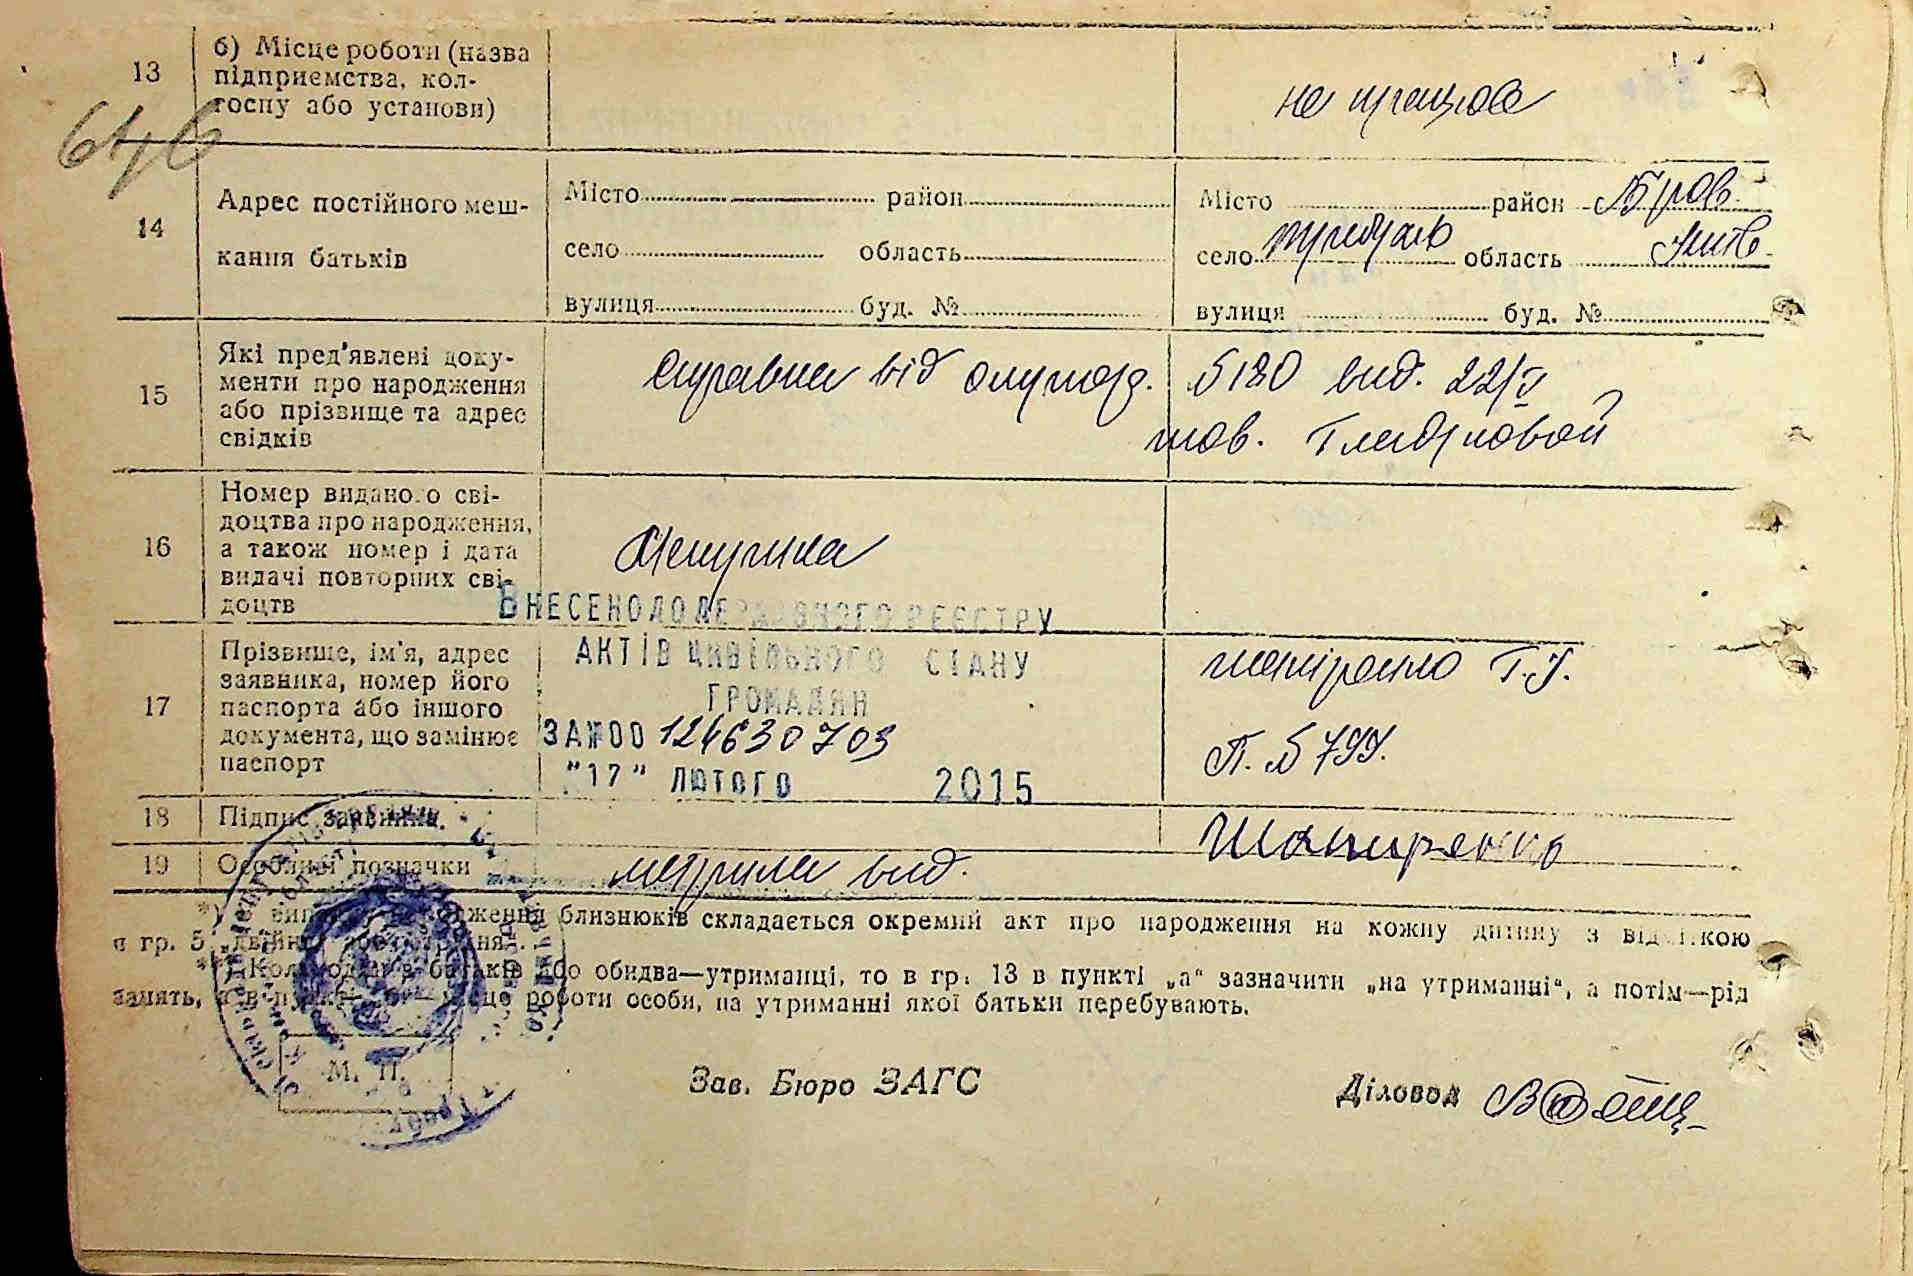 13 б) Місце роботи (назва
підприємства, кол-
госпу або установи)
не працює
646
14 Адрес постійного меш-
кання батьків
Місто район
село область
вулиця буд. №
Місто район Бров.
село область Київ.
вулиця буд. №
15 Які пред'явлені доку-
менти про народження
або прізвище та адрес
свідків
Справка від 5180 вид. 22/V
тов.
16 Номер виданого сві-
доцтва про народження,
а також номер і дата
видачі повторних сві-
доцтв
ВНЕСЕНО ДО ДЕРЖАВНОГО РЕЄСТРУ
АКТІВ ЦИВІЛЬНОГО СТАНУ
ГРОМАДЯН
ЗА №00 124630703
"17" ЛЮТОГО 2015
17 Прізвище, ім'я, адрес
заявника, номер його
паспорта або іншого
документа, що замінює
паспорт
Шапіренко Г.
П. 5799.
18 Підпис заявника.
Шапиренко
19 Особливі позначки
метрика вид.
*) У випадку народження близнюків складається окремий акт про народження на кожну дитину з відміткою
в гр. 5 „двійня"
**) Коли один з батьків або обидва—утриманці, то в гр. 13 в пункті „а" зазначити „на утриманні", а потім—рід
занять, а в пункті „б"—місце роботи особи, на утриманні якої батьки перебувають.
М. П.
Зав. Бюро ЗАГС
Діловод